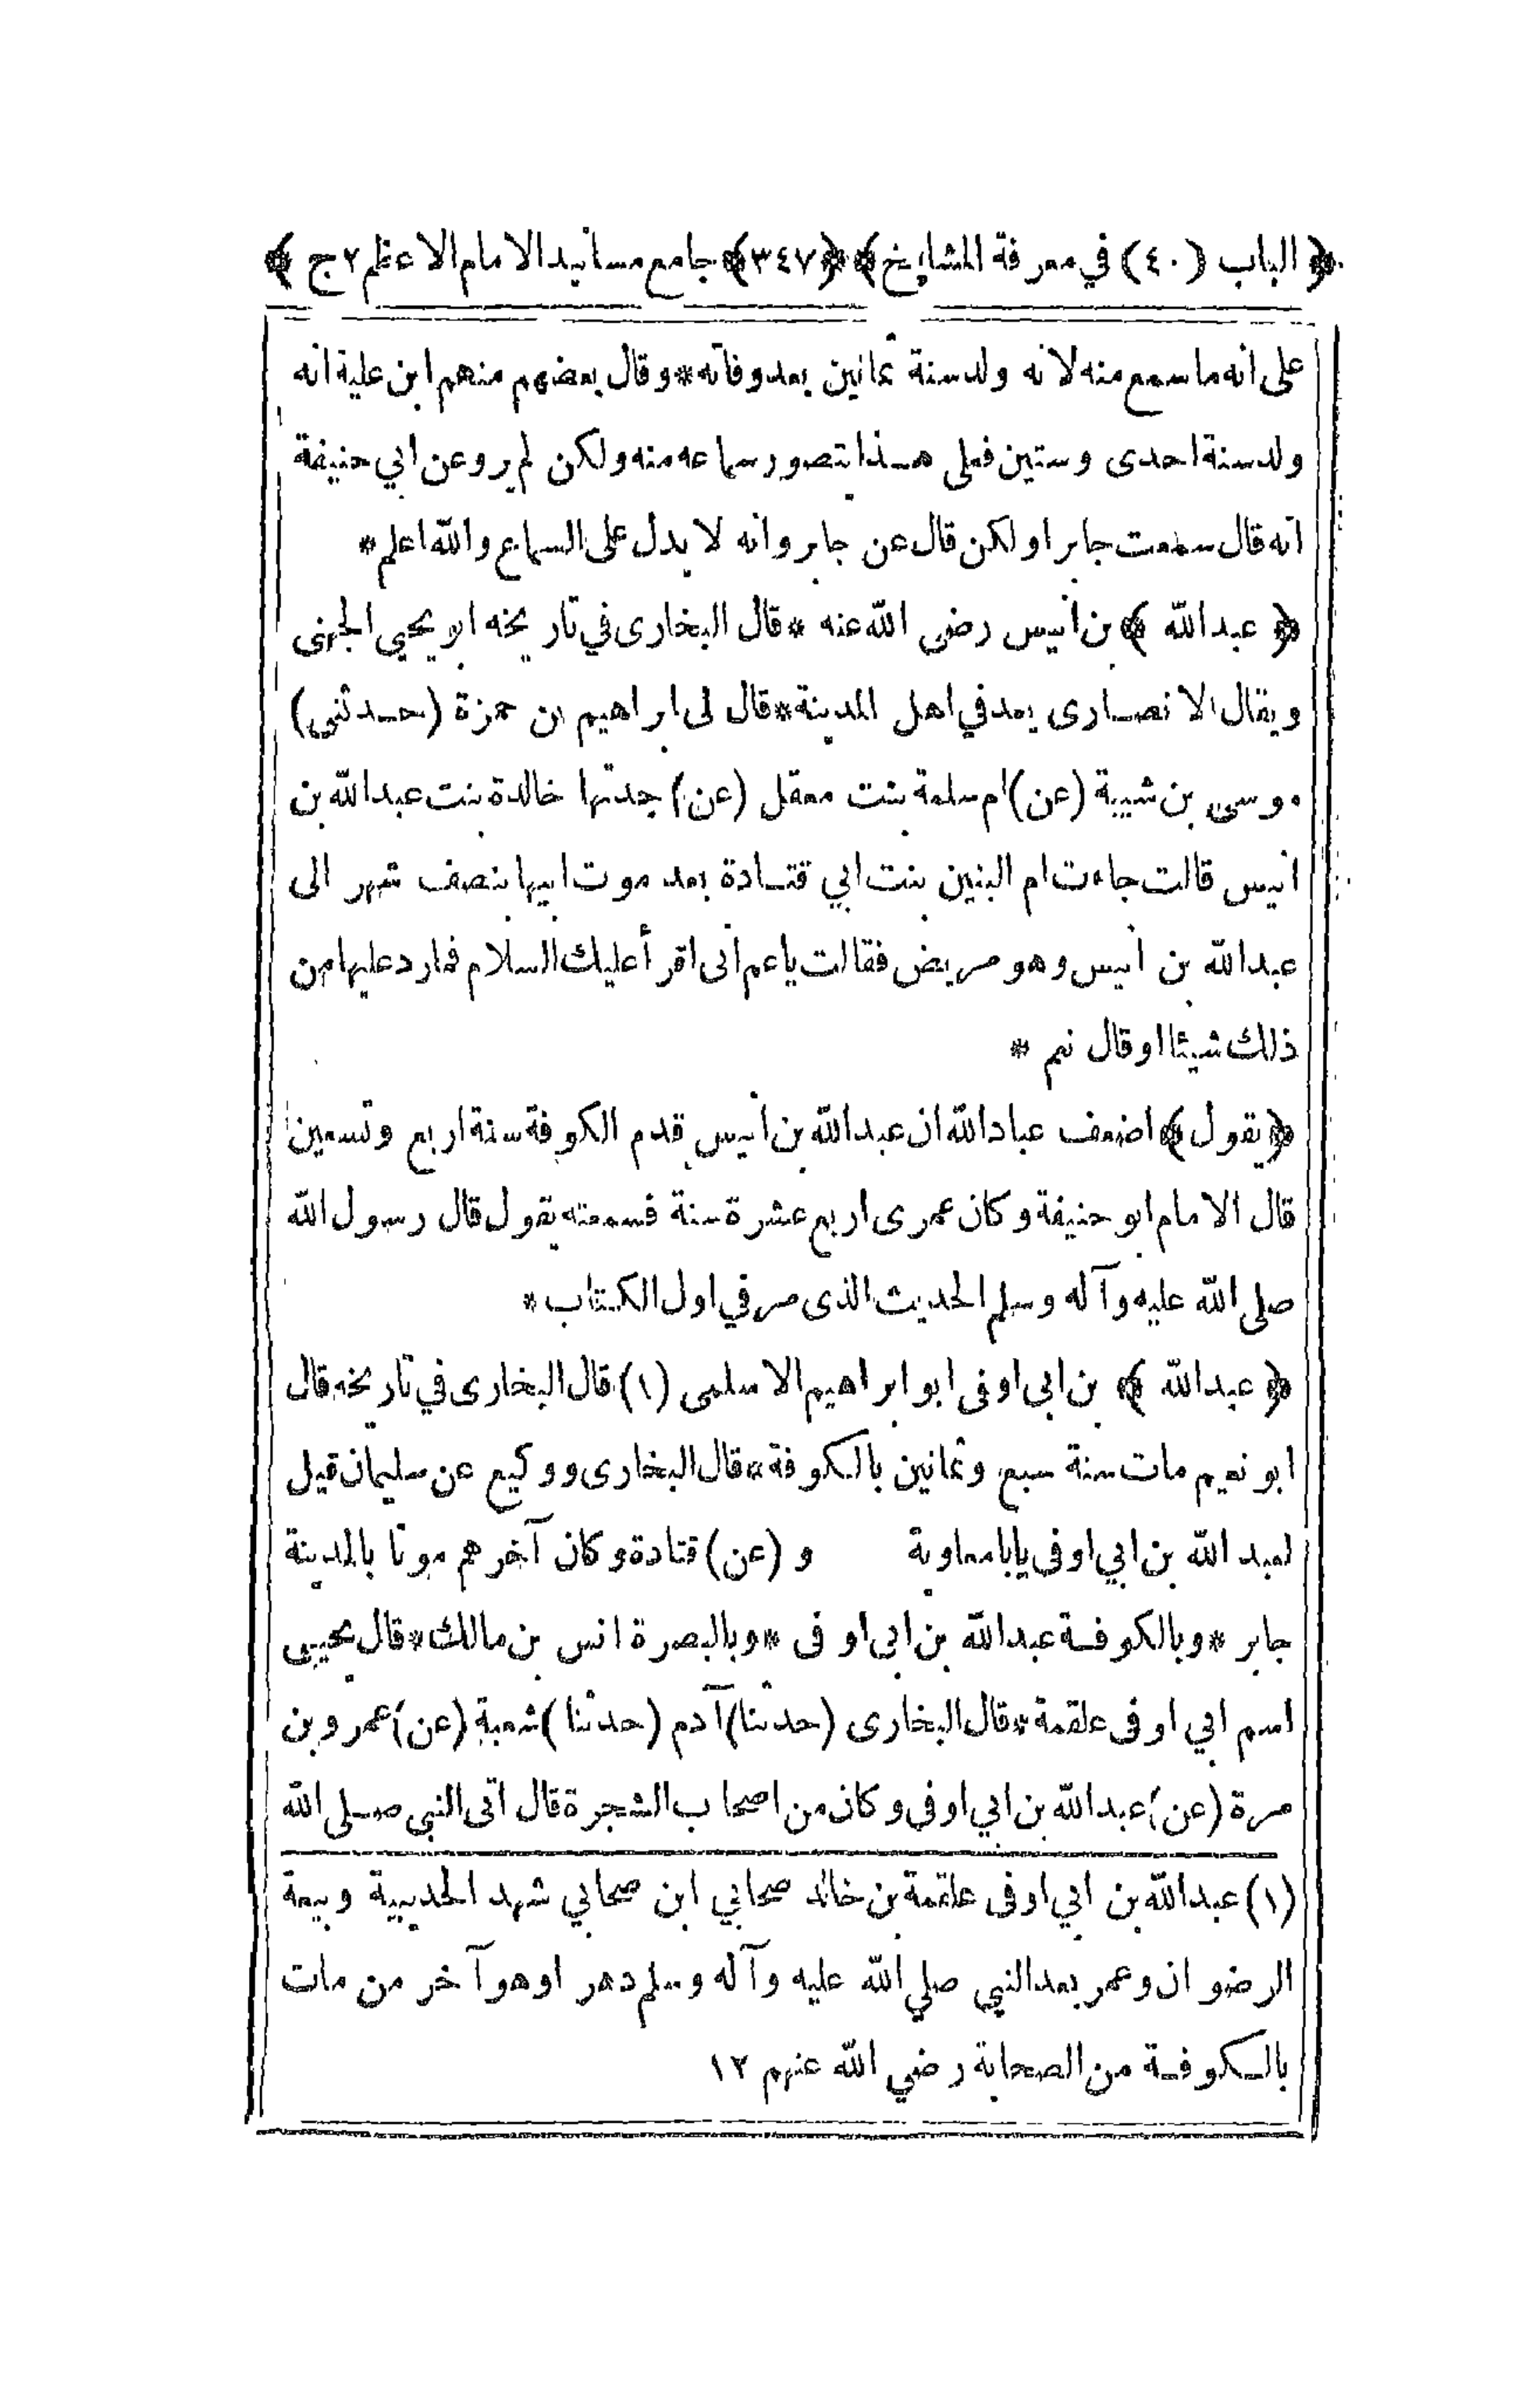 ﴿ الباب (٤٠) في معرفة المشايخ ﴾ ﴿٣٤٧﴾ جامع مسانيد الامام الاعظم ج٢ ﴾
على انه ما سمع منه لانه ولد سنة ثمانين بعد وفاته * وقال بعضهم منهم ابن علية انه
ولد سنة احدى وستين فعلى هـذا يتصور سماعه منه ولكن لم يرو عن ابي حنيفة
انه قال سمعت جابرا ولكن قال عن جابر وانه لا يدل على السماع والله اعلم *
﴿ عبد الله ﴾ بن أنيس رضى الله عنه * قال البخارى في تاريخه ابو يحيي الجهنى
ويقال الانصارى يعد في اهل المدينة * قال لى ابراهيم بن حمزة (حدثنى)
موسى بن شيبة (عن) ام سلمة بنت معقل (عن) جدتها خالدة بنت عبد الله بن
أنيس قالت جاءت ام البنين بنت ابي قتادة بعد موت ابيها بنصف شهر الى
عبد الله بن أنيس وهو مريض فقالت يا عم انى اقرأ عليك السلام فمارد عليها من
ذلك شيئا او قال نعم *
﴿ يقول ﴾ اضعف عباد الله ان عبد الله بن أنيس قدم الكوفة سنة اربع وتسعين
قال الامام ابو حنيفة وكان عمرى اربع عشرة سنة فسمعته يقول قال رسول الله
صلى الله عليه وآله وسلم الحديث الذى مر في اول الكتاب *
﴿ عبد الله ﴾ بن ابى اوفى ابو ابراهيم الاسلمى (١) قال البخارى في تاريخه قال
ابو نعيم مات سنة سبع وثمانين بالكوفة * قال البخارى ووكيع عن سليمان قيل
لعبد الله بن ابي اوفى يا با معاوية و (عن) قتادة وكان آخرهم موتا بالمدينة
جابر * وبالكوفة عبد الله بن ابى اوفى * وبالبصرة انس بن مالك * قال يحيى
اسم ابي اوفى علقمة * قال البخارى (حدثنا) آدم (حدثنا) شعبة (عن) عمرو بن
مرة (عن) عبد الله بن ابي اوفى وكان من اصحاب الشجرة قال اتى النبي صلى الله
(١) عبد الله بن ابي اوفى علقمة بن خالد صحابي ابن صحابي شهد الحديبية وبيعة
الرضوان وعمر بعد النبي صلي الله عليه وآله وسلم دهرا وهو آخر من مات
بالكوفة من الصحابة رضي الله عنهم ١٢